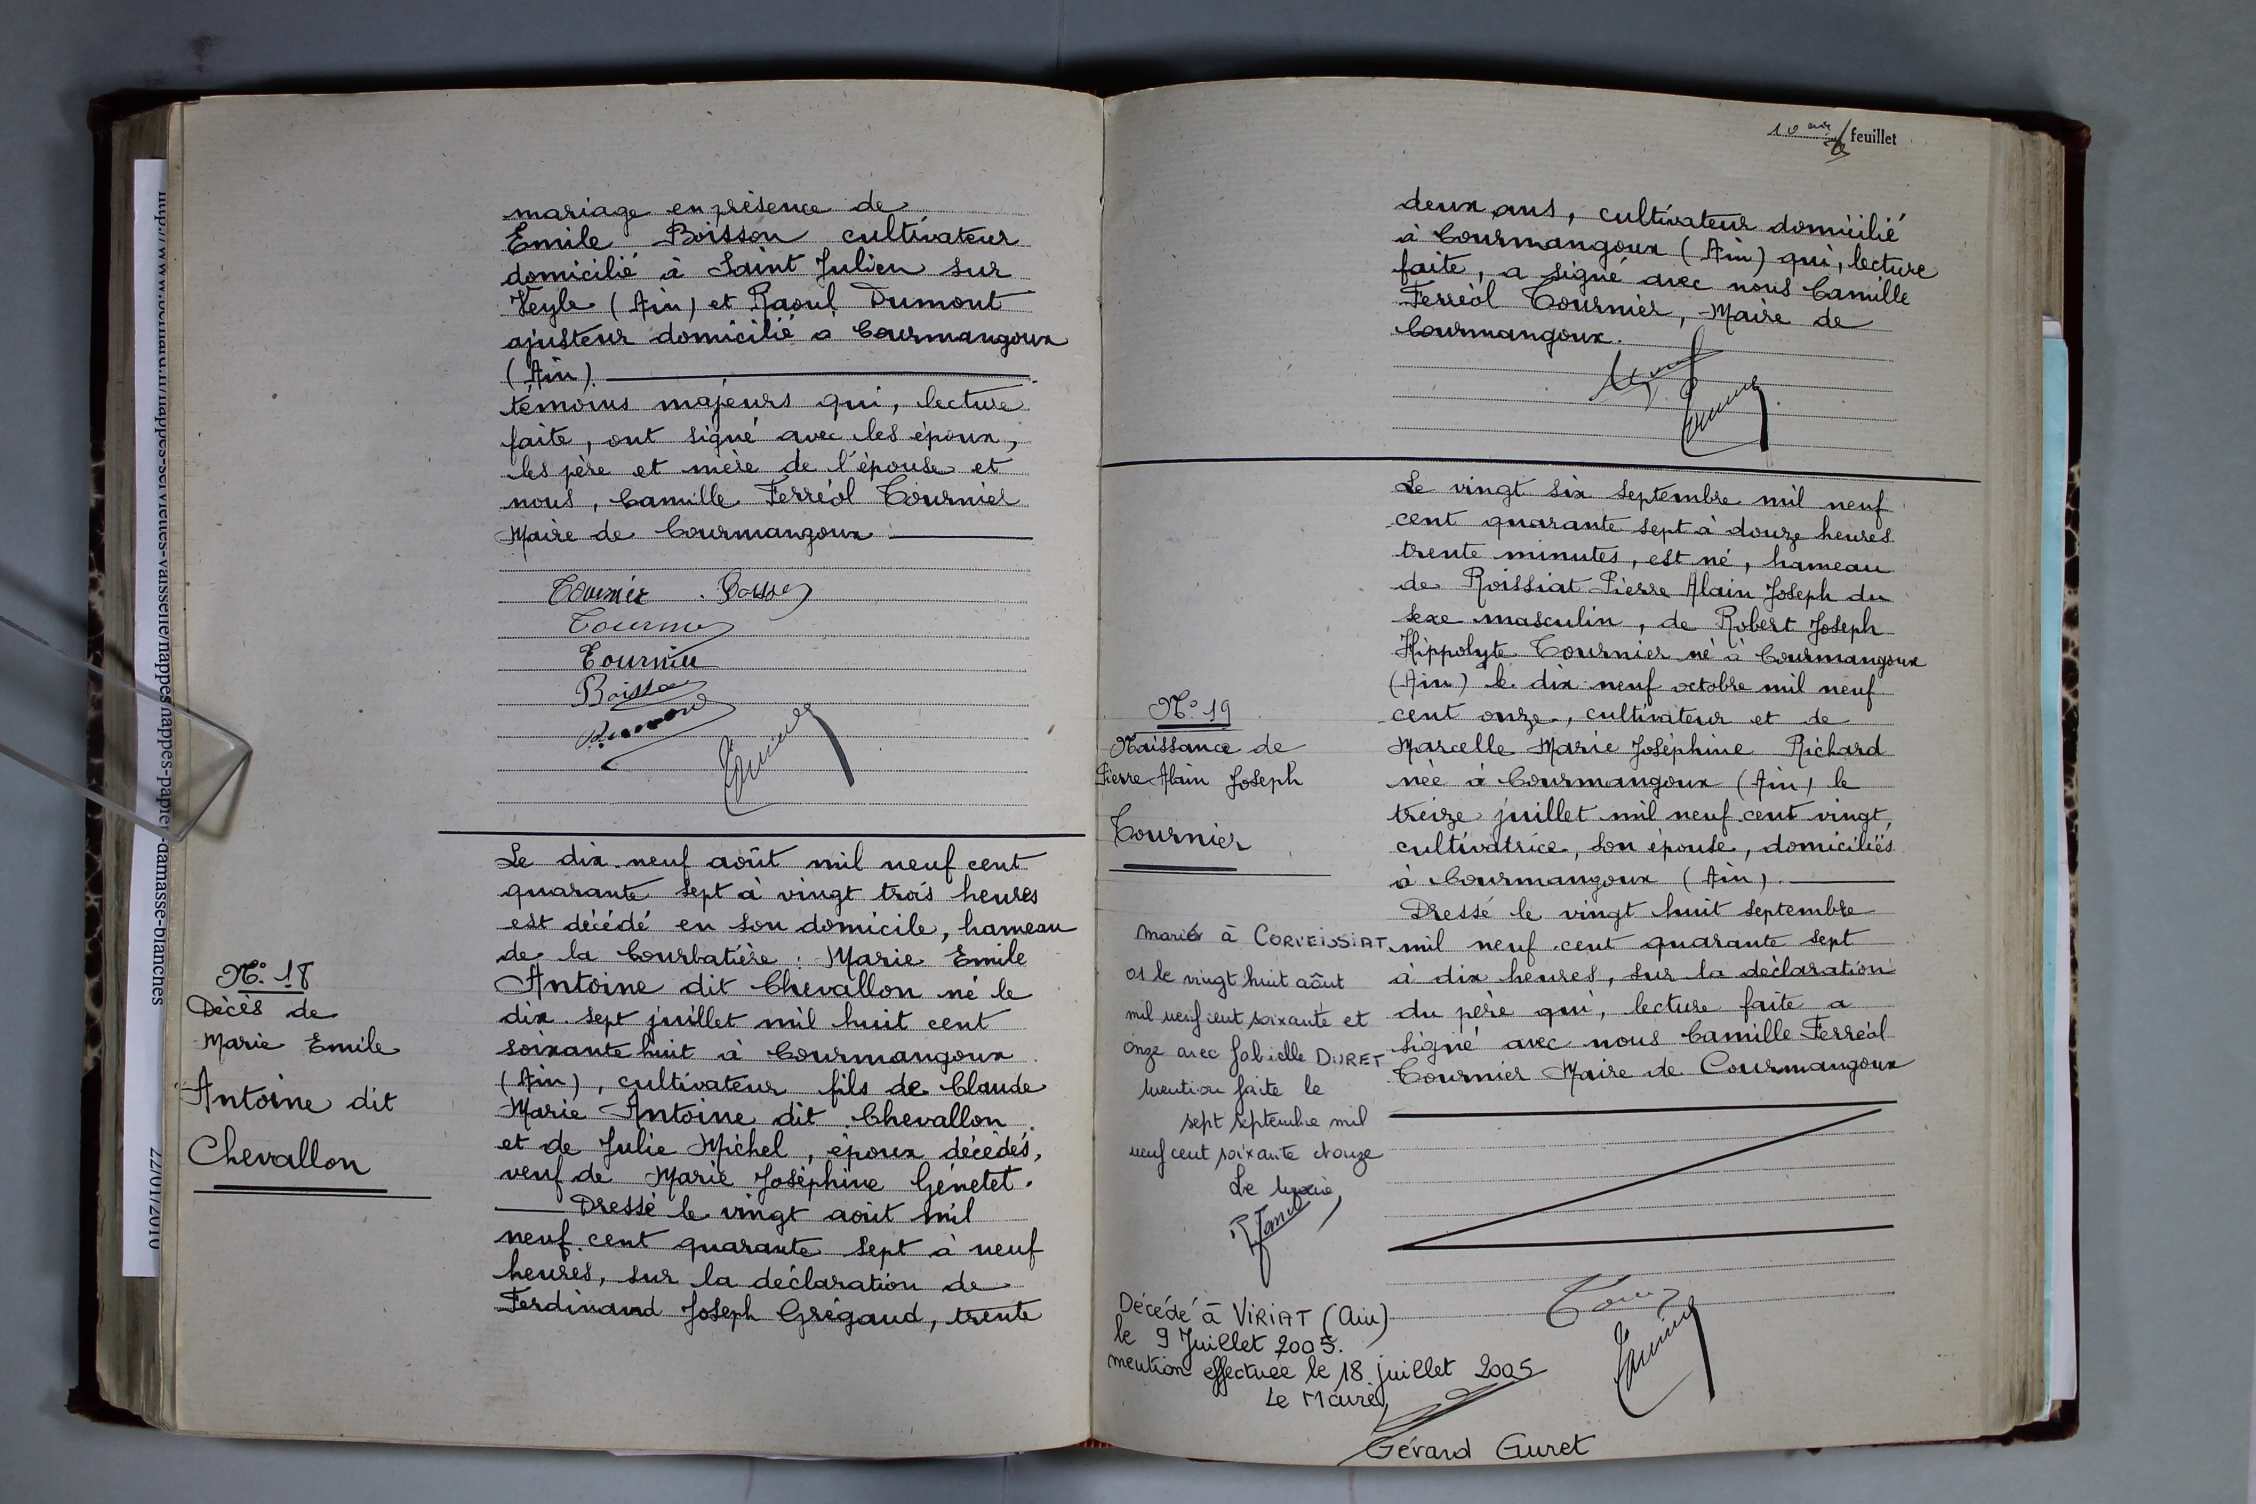 mariage en présence de
Emile Boisson cultivateur
domicilié à Saint Julien sur
Veyle (Ain) et Raoul Dumont
ajusteur domicilié a Courmangoux
(Ain).
témoins majeurs qui, lecture
faite, ont signé avec les époux,
les père et mère de l'épouse et
nous, Camille Ferréol Tournier
Maire de Courmangoux
Tournier
Tournier
Tournier
Boisson
N° 18
Décès de
Marie Emile
Antoine dit
Chevallon
Le dix-neuf août mil neuf cent
quarante sept à vingt trois heures
est décédé en son domicile, hameau
de la Courbatière : Marie Emile
Antoine dit Chevallon né le
dix-sept juillet mil huit cent
soixante huit à Courmangoux
(Ain), cultivateur fils de Claude
Marie Antoine dit Chevallon
et de Julie Michel, époux décédés,
veuf de Marie Joséphine Génetet.
Dressé le vingt août mil
neuf cent quarante sept à neuf
heures, sur la déclaration de
Ferdinand Joseph Grégaud, trente
feuillet
deux ans, cultivateur domicilié
à Courmangoux (Ain) qui, lecture
faite, a signé avec nous Camille
Ferréol Tournier, Maire de
Courmangoux.
N° 19
Naissance de
Pierre Alain Joseph
Tournier
Le vingt six septembre mil neuf
cent quarante sept à douze heures
trente minutes, est né, hameau
de Roissiat Pierre Alain Joseph du
sexe masculin, de Robert Joseph
Hippolyte Tournier né à Courmangoux
(Ain) le dix-neuf octobre mil neuf
cent onze, cultivateur et de
Marcelle Marie Joséphine Richard
née à Courmangoux (Ain) le
treize juillet mil neuf cent vingt,
cultivatrice, son épouse, domiciliés
à Courmangoux (Ain).
Dressé le vingt huit septembre
mil neuf cent quarante sept
à dix heures, sur la déclaration
du père qui, lecture faite a
signé avec nous Camille Ferréol
Tournier Maire de Courmangoux
Marié à CORVEISSIAT
01 le vingt huit août
mil neuf cent soixante et
onze avec Gabielle DURET
mention faite le
sept septembre mil
neuf cent soixante et onze
Le Maire
Décédé à VIRIAT (Ain)
le 9 Juillet 2005.
mention effectuée le 18 juillet 2005
Le Maire,
Gérard Guret
22/01/2010